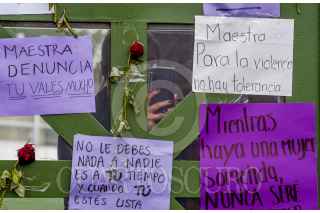 MAESTRA
DENUNCIA
TU VALES MUCHO
Maestra
Para la violencia
no hay tolerancia
NO LE DEBES
NADA A NADIE
ES A TU TIEMPO
Y CUANDO TÚ
ESTES LISTA
Mientras
haya una mujer
NUNCA SERÉ